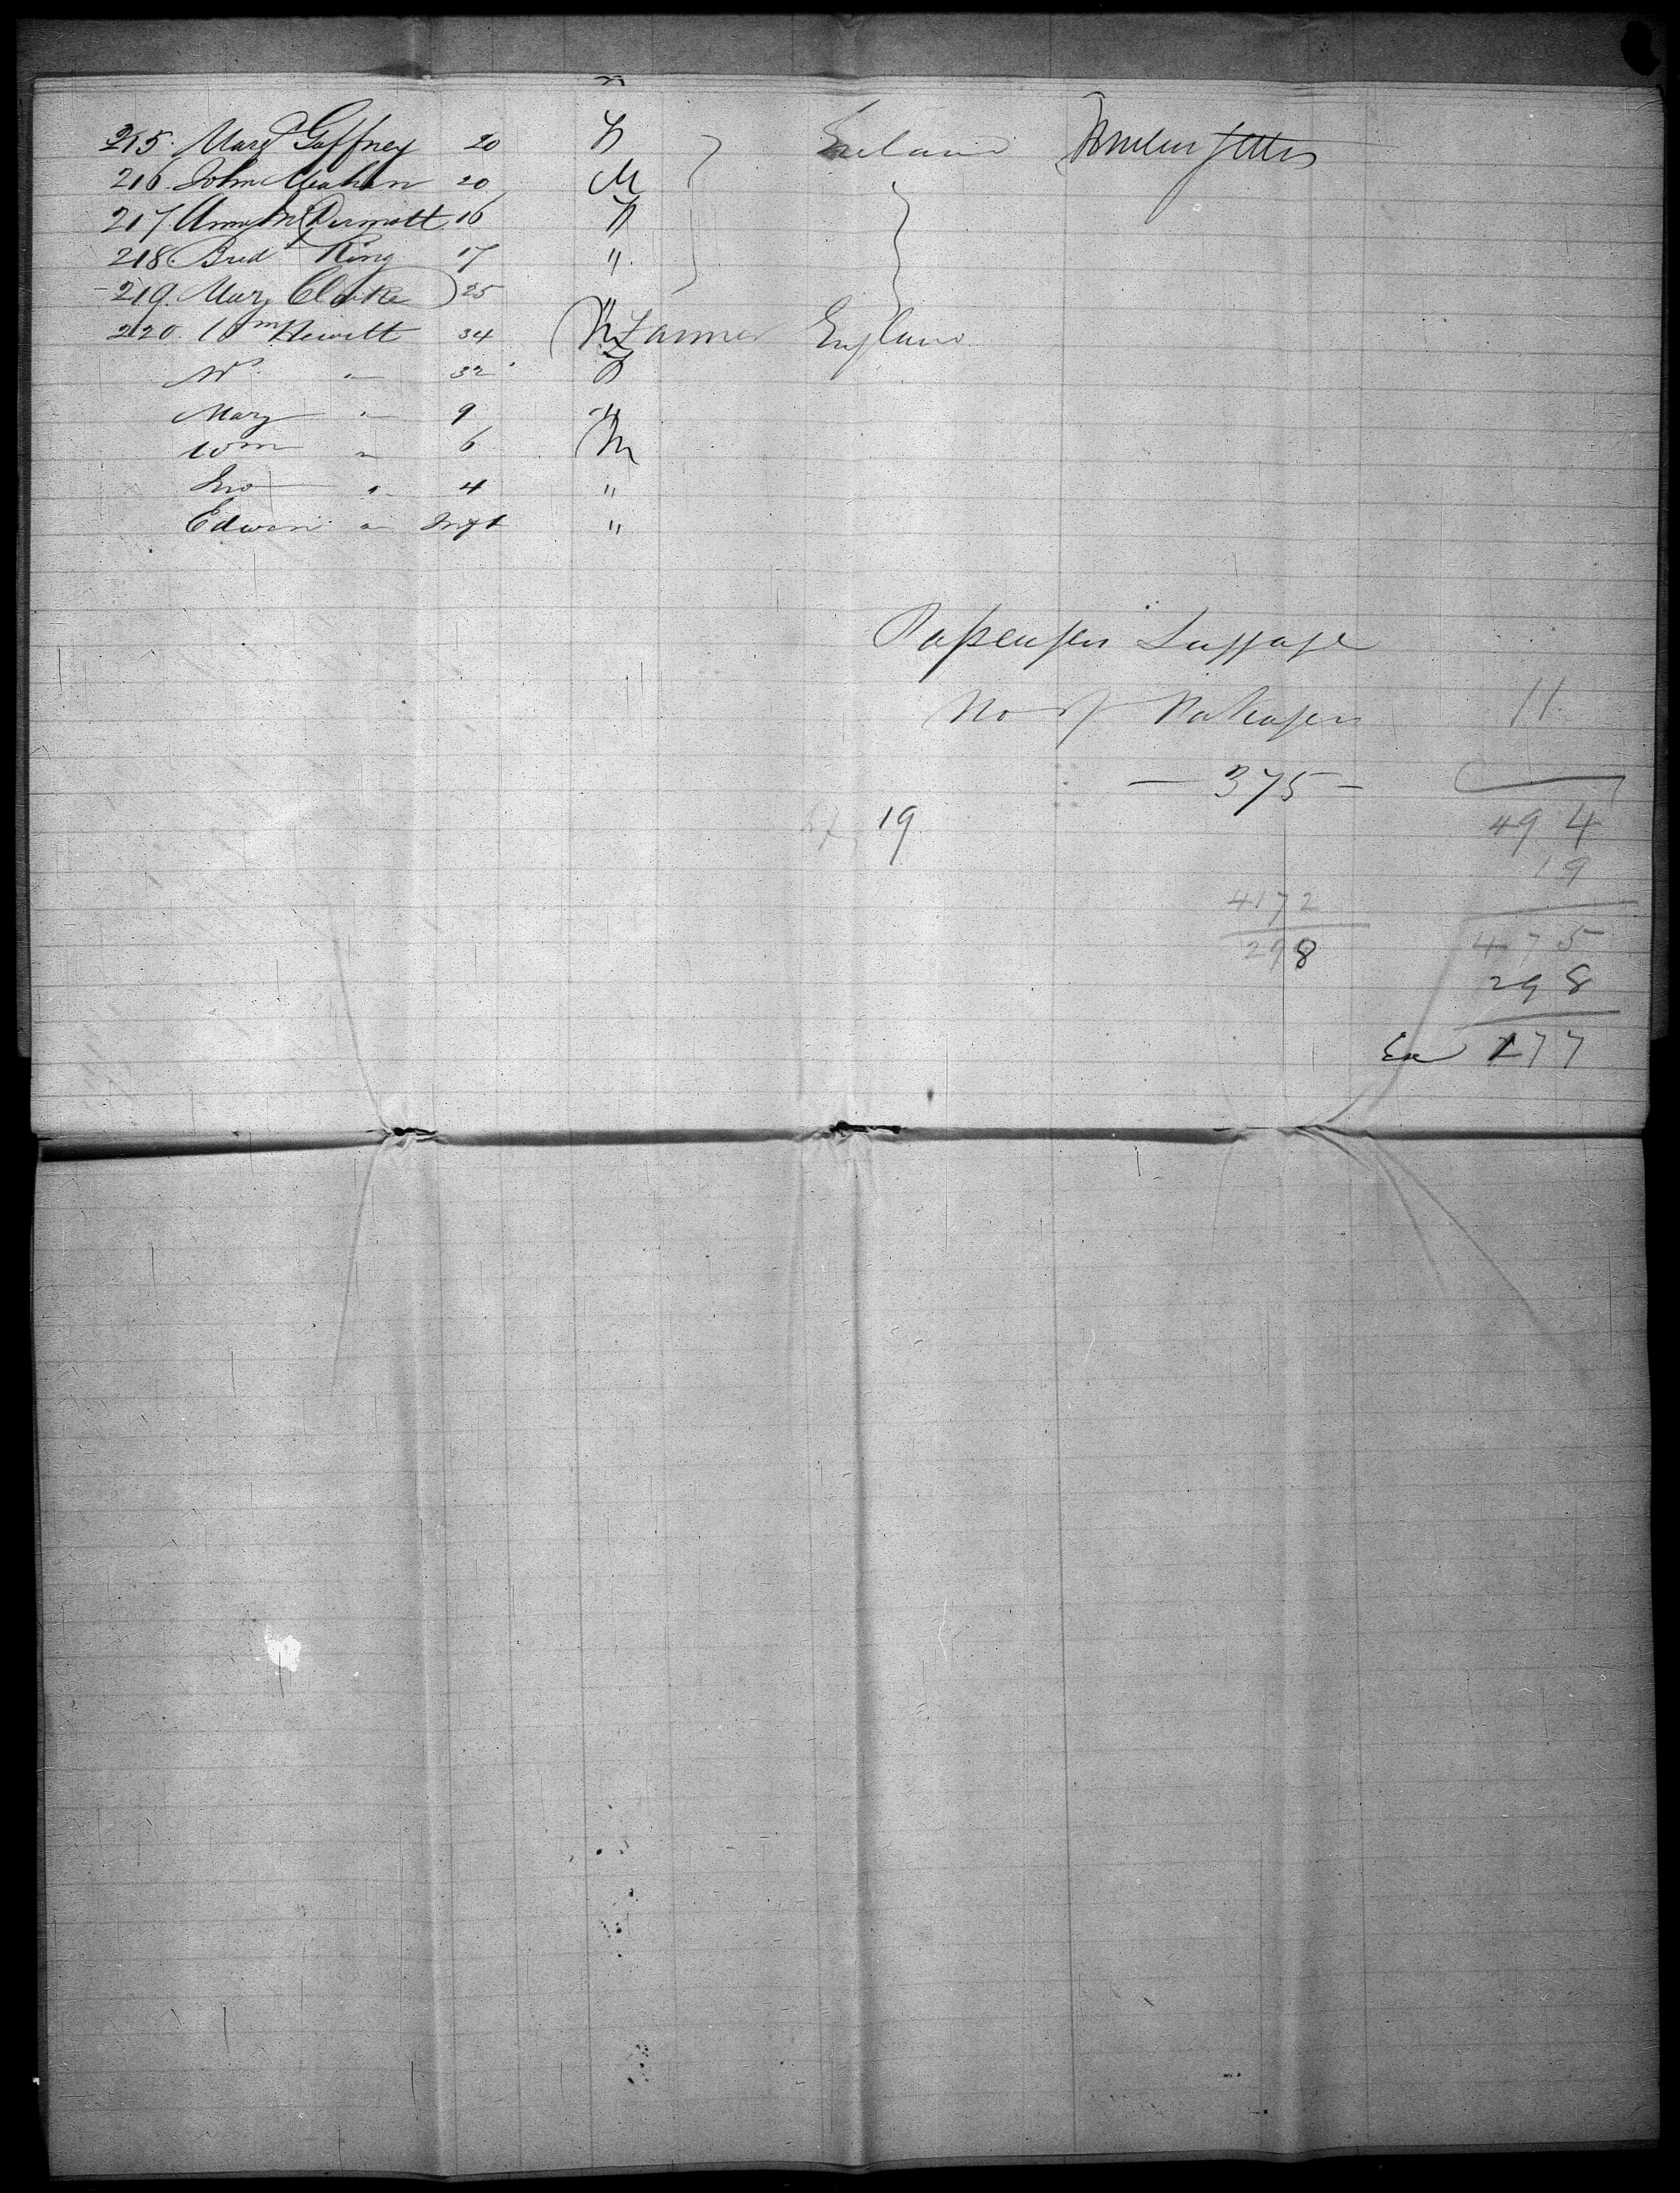 215. Margt Gaffney 20 F } Ireland
216. John Meahan 20 M
217. Ann McDermott 16 F
218. Bridt King 17 "
219. Mary Clarke 25 "
220. Wm Hewitt 34 M Farmer England
Mrs " 32 F
Mary " 9 "
Wm " 6 M
Jno " 4 "
Edwin " Inft "
Passengers Luggage
No of Packages 11
— 375 —
19 494
19
4172
298 475
298
177